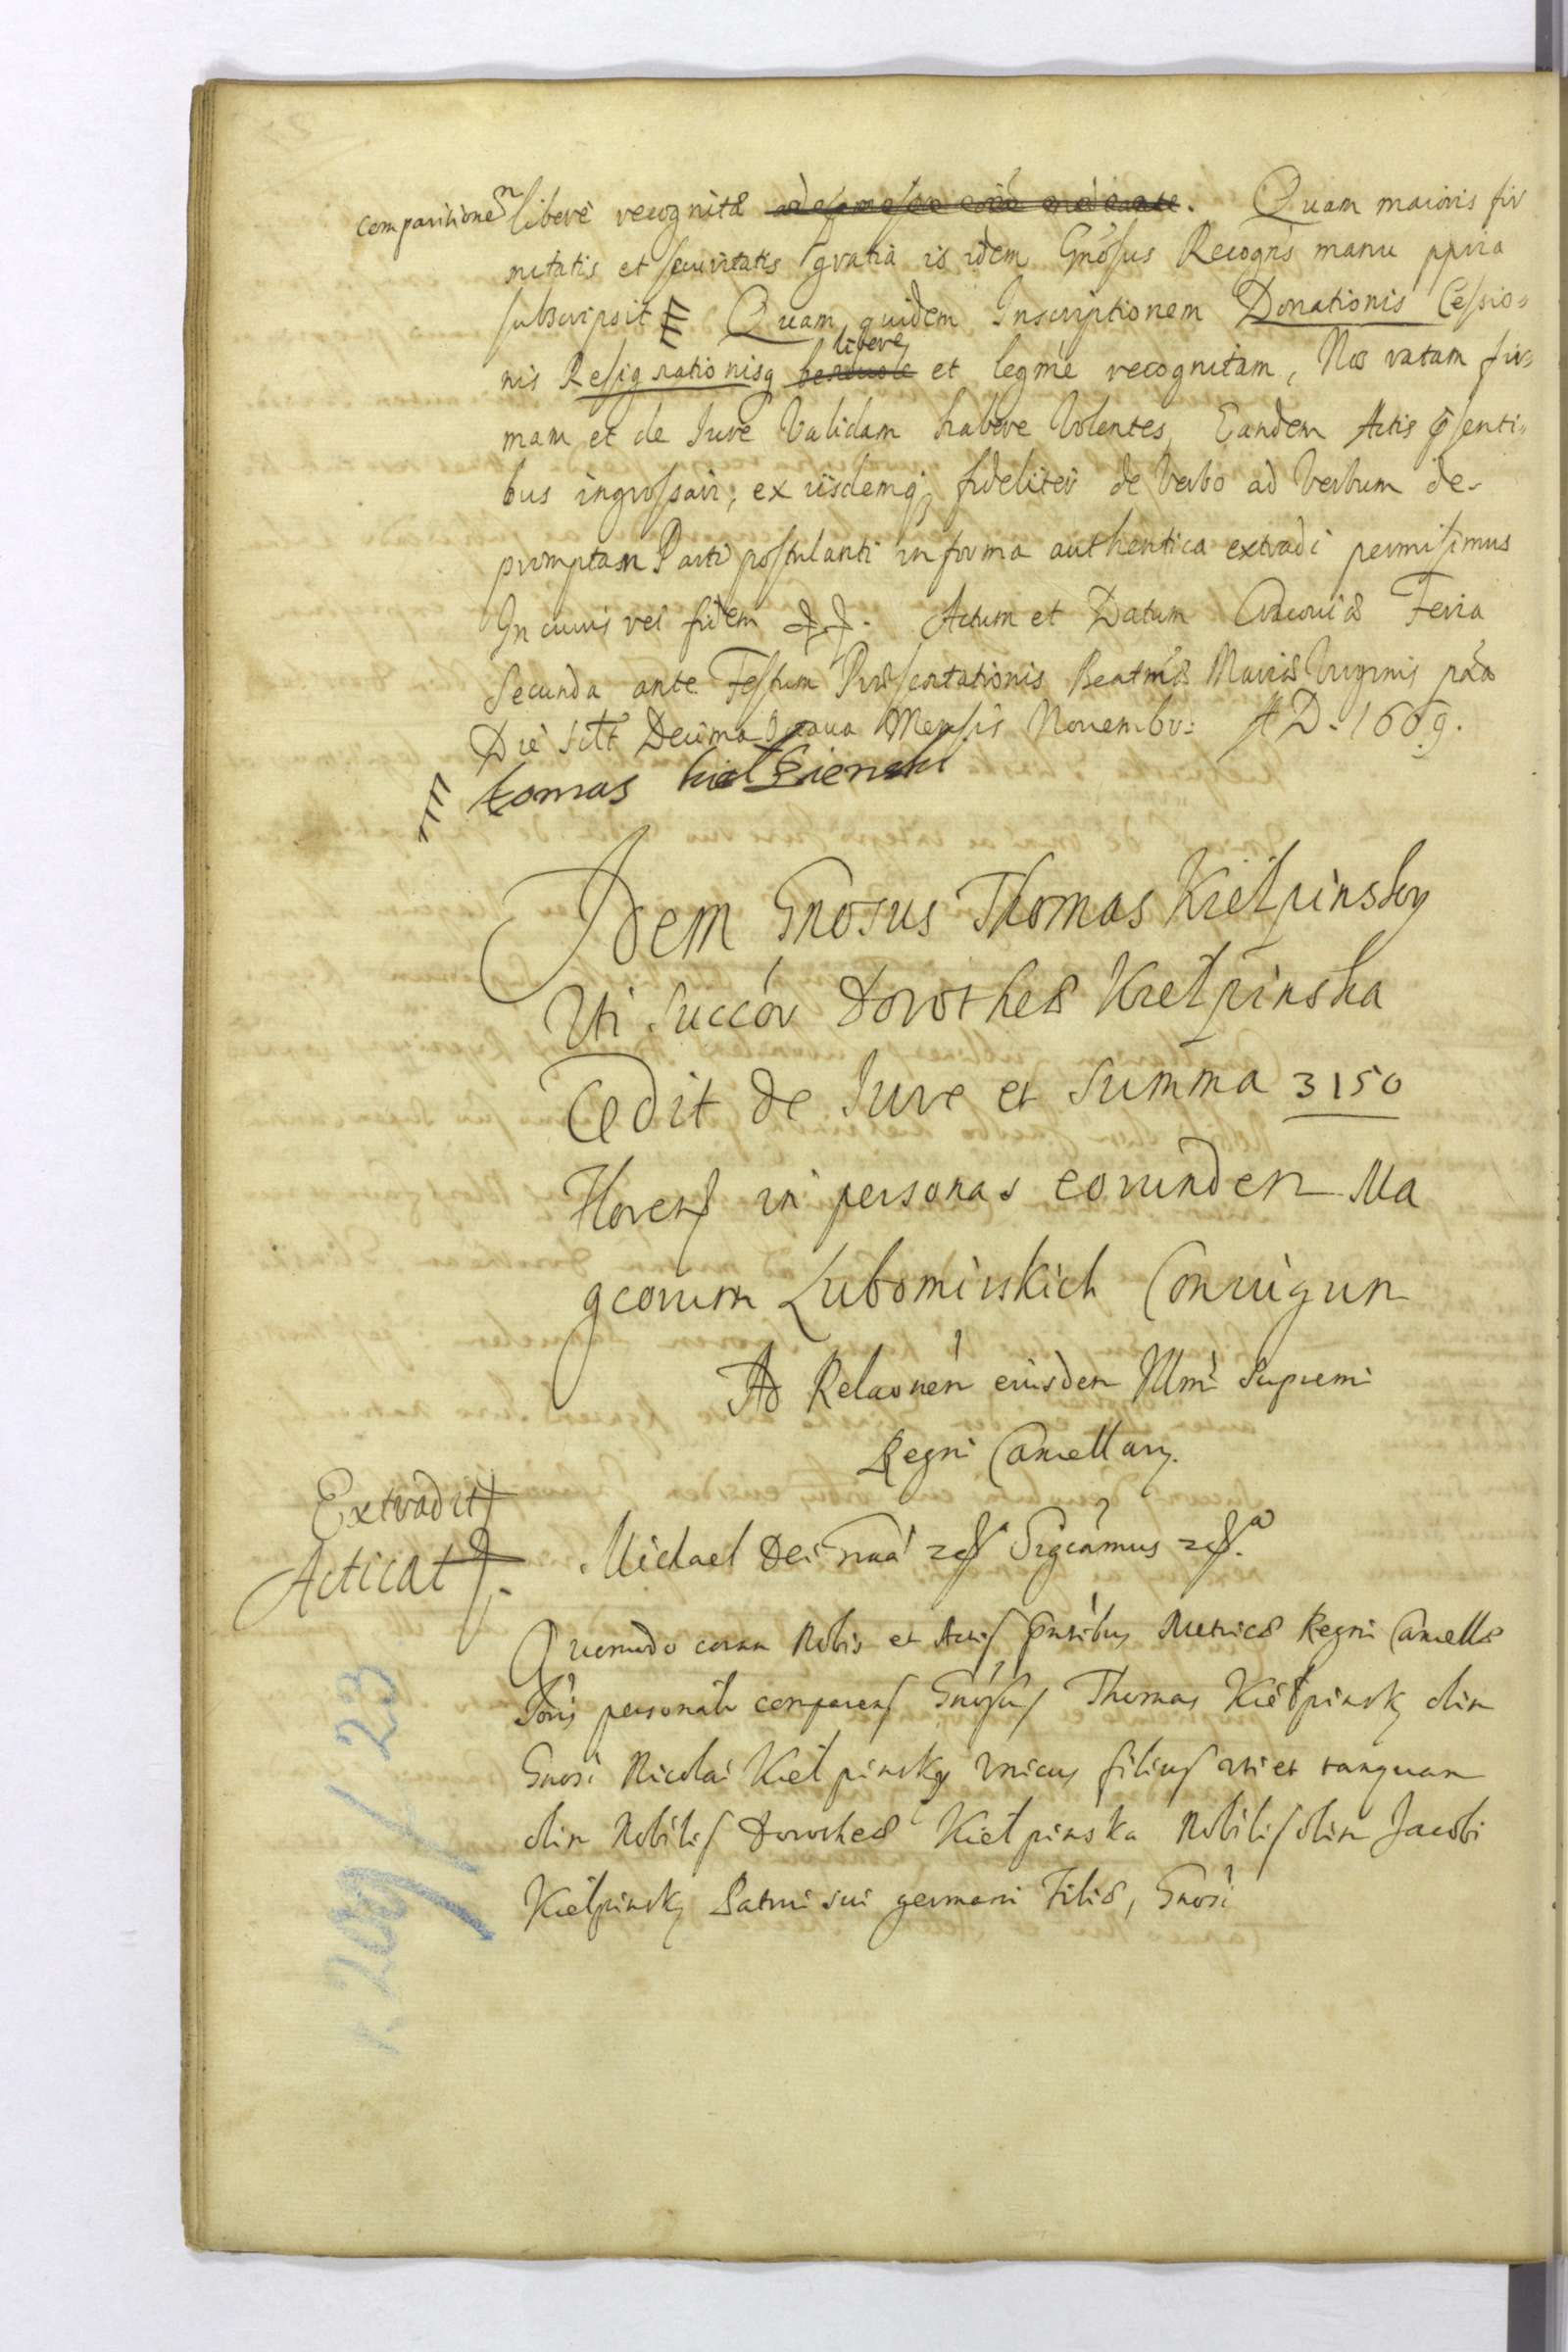 comparitionē liberè recognitæ. Quam maioris fir
mitatis et securitatis gratia is idem Gnosus Recogns manu ppria
subscripsit Quam quidem Inscriptionem Donationis Cessio=
nis Resignationisq libere et legmè recognitam, Nos ratam fir=
mam et de Iure Validam habere Volentes, Eandem Actis psenti=
bus ingrossari, ex iisdemq fideliter de Verbo ad Verbum de-
promptam Parti postulanti in forma authentica extradi permisimus
In cuius rei fidem Actum et Datum Cracouiæ Feria
Secunda ante Festum Præsentationis Beatmæ Mariæ Virginis pxa
Die scit Decima Octaua Mensis Nouembr: AD. 1669.
tomas kiełpienski
Idem Gnosus Thomas Kiełpinsky
Uti Succór Dorotheæ Kiełpinska
Cedit de Iure et Summa 3150
Floren in personas eorundem Ma
gcorum Lubomirskich Coniugum
Ad Relaonen eiusdem Illmi Supremi
Regni Cancellary.
Extradit
Acticat
Michael Dei Graa Sigcamus
Quomodo coram Nobis et Actis pntibus Metricæ Regni Cancellæ
personalr comparens Gnosus Thomas Kiełpinsky olim
Gnosi Nicolai Kiełpinsky vnicus filius uti et tanquam
olim Nobilis Dorotheæ Kiełpinska Nobilis olim Jacobi
Kiełpinsky Patrui sui germani Filiæ, Gnosi
209/23